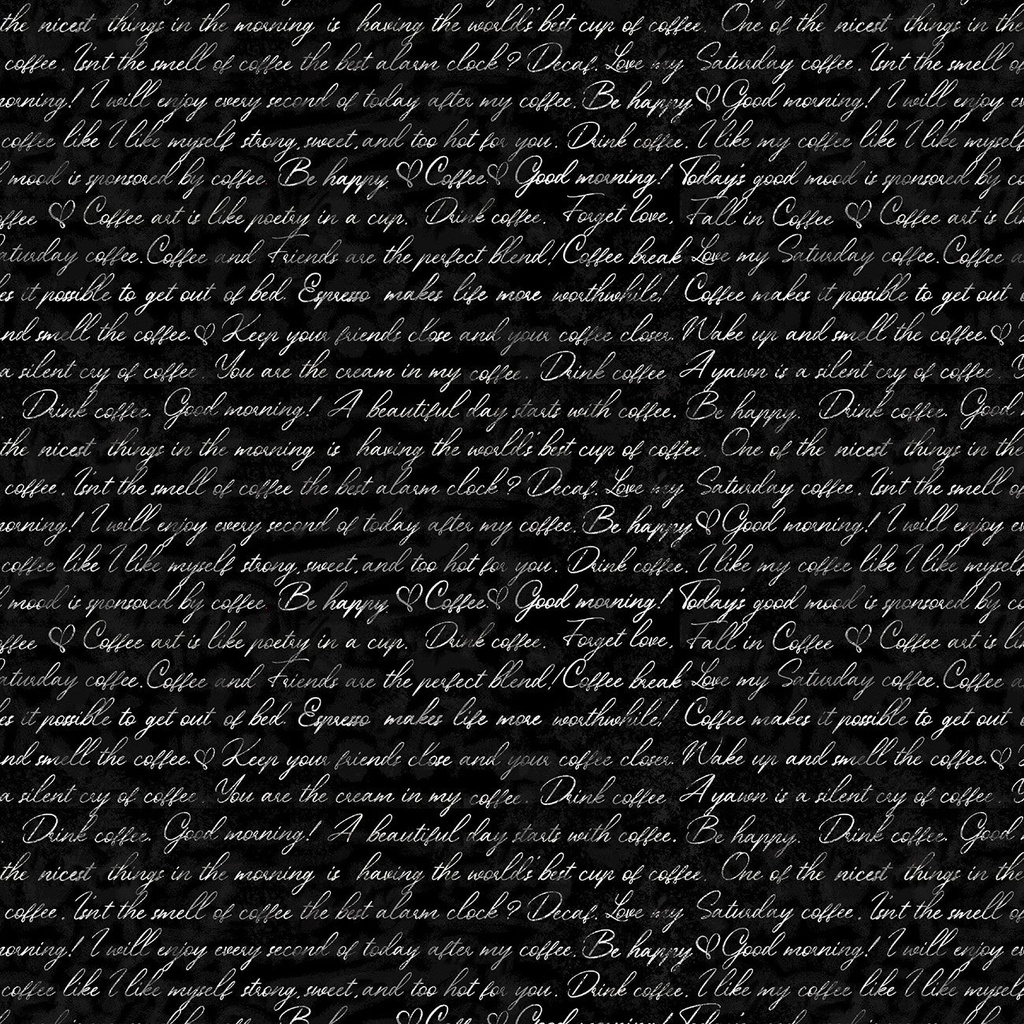 the nicest things in the morning is having the world's best cup of coffee. One of the nicest things in the
coffee. Isnt the smell of coffee the best alarm clock? Decaf. Love my Saturday coffee. Isnt the smell of
morning! I will enjoy every second of today after my coffee. Be happy ♡ Good morning! I will enjoy ev
coffee like I like myself strong, sweet, and too hot for you. Drink coffee. I like my coffee like I like myself
mood is sponsored by coffee. Be happy. ♡ Coffee ♡ Good morning! Today's good mood is sponsored by co
offee ♡ Coffee art is like poetry in a cup. Drink coffee. Forget love, Fall in Coffee ♡ Coffee art is li
aturday coffee. Coffee and Friends are the perfect blend! Coffee break Love my Saturday coffee. Coffee a
es it possible to get out of bed. Espresso makes life more worthwhile! Coffee makes it possible to get out
and smell the coffee. ♡ Keep your friends close and your coffee closer. Wake up and smell the coffee. ♡
a silent cry of coffee. You are the cream in my coffee. Drink coffee A yawn is a silent cry of coffee Y
. Drink coffee. Good morning! A beautiful day starts with coffee. Be happy. Drink coffee. Good m
the nicest things in the morning is having the world's best cup of coffee. One of the nicest things in the
coffee. Isnt the smell of coffee the best alarm clock? Decaf. Love my Saturday coffee. Isnt the smell of
morning! I will enjoy every second of today after my coffee. Be happy ♡ Good morning! I will enjoy ev
coffee like I like myself strong, sweet, and too hot for you. Drink coffee. I like my coffee like I like myself
mood is sponsored by coffee. Be happy. ♡ Coffee ♡ Good morning! Today's good mood is sponsored by co
offee ♡ Coffee art is like poetry in a cup. Drink coffee. Forget love, Fall in Coffee ♡ Coffee art is li
aturday coffee. Coffee and Friends are the perfect blend! Coffee break Love my Saturday coffee. Coffee a
es it possible to get out of bed. Espresso makes life more worthwhile! Coffee makes it possible to get out
and smell the coffee. ♡ Keep your friends close and your coffee closer. Wake up and smell the coffee. ♡
a silent cry of coffee. You are the cream in my coffee. Drink coffee A yawn is a silent cry of coffee Y
Drink coffee. Good morning! A beautiful day starts with coffee. Be happy. Drink coffee. Good m
the nicest things in the morning is having the world's best cup of coffee. One of the nicest things in the
coffee. Isnt the smell of coffee the best alarm clock? Decaf. Love my Saturday coffee. Isnt the smell of
morning! I will enjoy every second of today after my coffee. Be happy ♡ Good morning! I will enjoy ev
coffee like I like myself strong, sweet, and too hot for you. Drink coffee. I like my coffee like I like myself